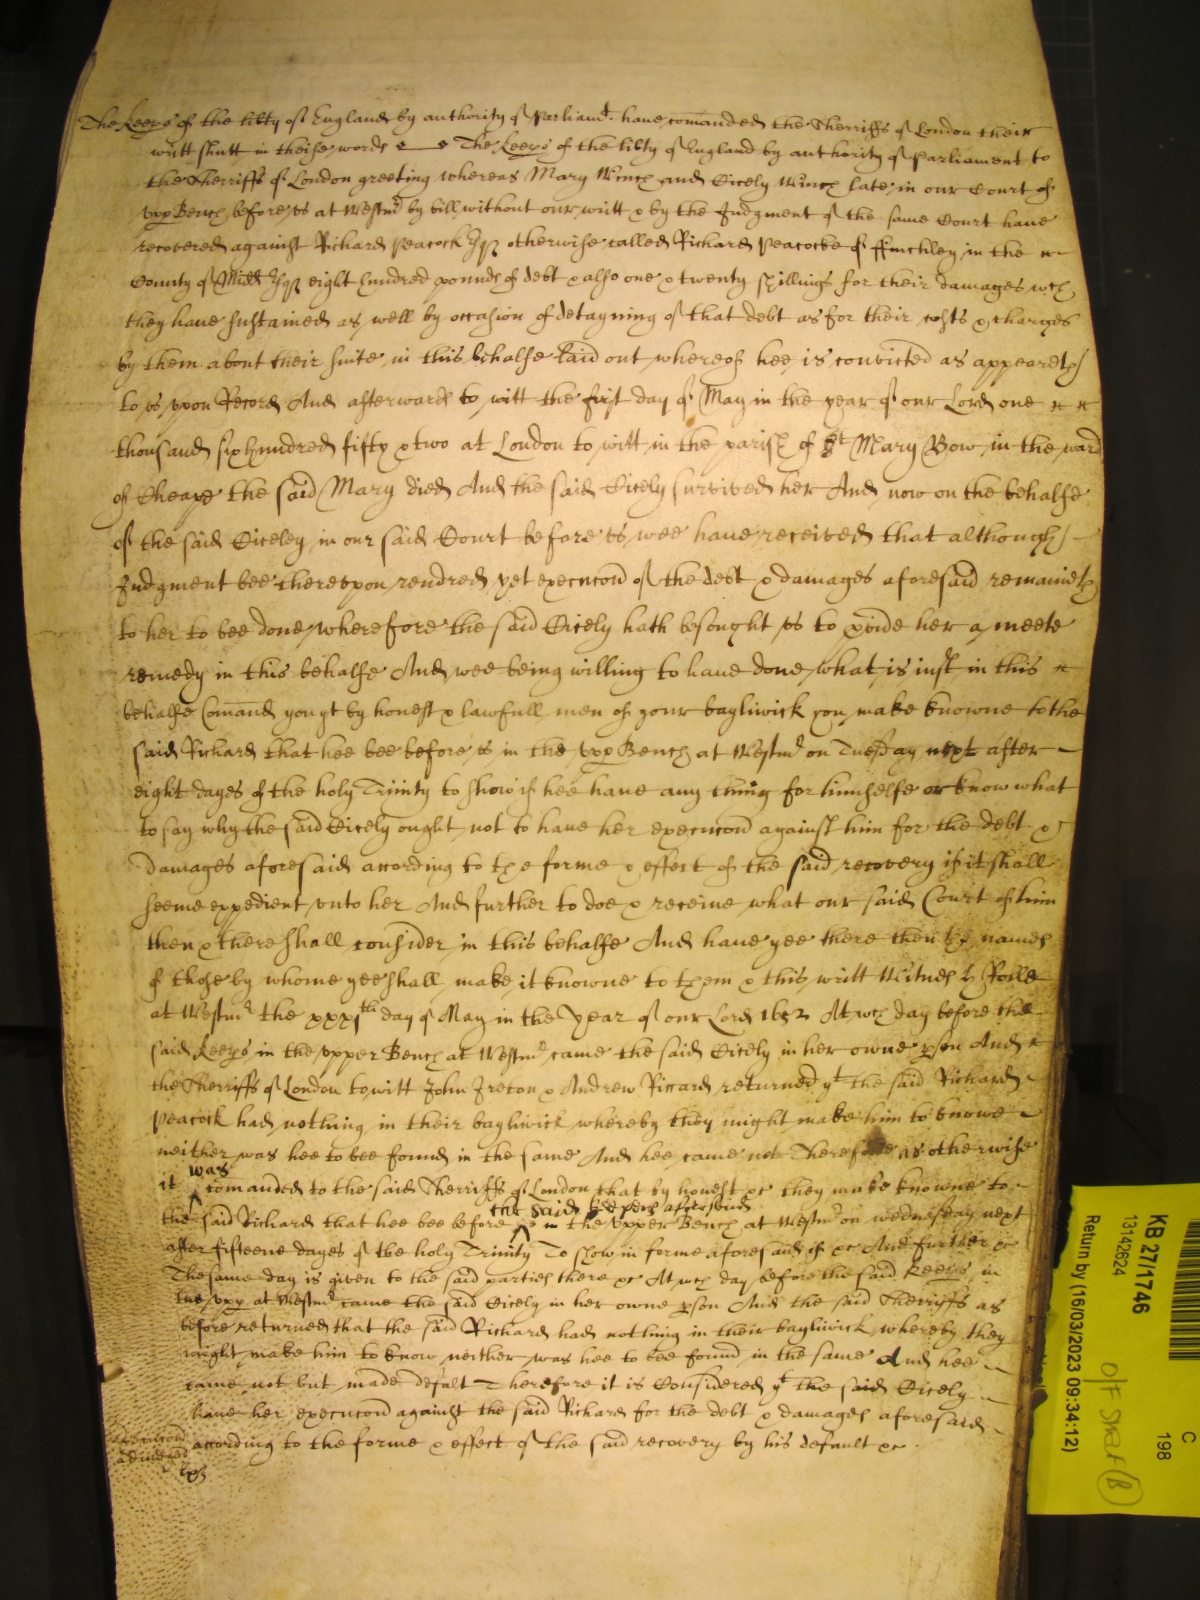 The Keep̃s of the lib̃ty of England by authority of Parliamt. have com̃anded the Sherriffs of London their
writt shutt in theise words The Keep̃s of the lib̃ty of England by authority of Parliament to
the Sherriffs of London greeting whereas Mary Winch and Cicely Winch late in our Court of
Vpp Bench before vs at Westmr by bill without our writt & by the Judgment of the same Court have
recovered against Richard Peacock Esqr otherwise called Richard Peacocke of ffinchley in the
County of Midd Esqr eight hundred pounds of debt & also one & twenty shillings for their damages wch
they have sustained as well by occasion of detayning of that debt as for their costs & charges
by them about their suite in this behalfe laid out whereof hee is convicted as appeareth
to vs vpon Record And afterwards to witt the first day of May in the year of our Lord one
thousand six hundred fifty & two at London to witt in the parish of St Mary Bow in the ward
of Cheape the said Mary died And the said Cicely survived her And now on the behalfe
of the said Ciceley in our said Court before vs wee have received that although
Judgment bee therevpon rendred yet execucon̄ of the debt & damages aforesaid remaineth
to her to bee done wherefore the said Cicely hath besought vs to p̱vide her a meete
remedy in this behalfe And wee being willing to have done what is iust in this
behalfe Com̃and you yt by honest & lawfull men of your bayliwick you make knowne to the
said Richard that hee bee before vs in the Vpp Bench at Westmr on Tuesday next after
eight dayes of the holy Trinity to show if hee have any thing for himselfe or know what
to say why the said Cicely ought not to have her execucon̄ against him for the debt &
damages aforesaid according to the forme & effect of the said recovery if it shall
seeme expedient vnto her And further to doe & receive what our said Court of him
then & there shall consider in this behalfe And have yee there then the names
of those by whome yee shall make it knowne to them & this writt Witnes H Rolle
at Westmr the xxxjth day of May in the year of our Lord 1652 At wch day before the
said Keep̃s in the Vpper Bench at Westmr came the said Cicely in her owne p̱son And
the Sherriffs of London to witt John Ireton & Andrew Riccard returned yt the said Richard
Peacock had nothing in their bayliwick whereby they might make him to knowe
neither was hee to bee found in the same And hee came not Therefore as otherwise
it was com̃anded to the said Sherriffs of London that by honest &c they make knowne to
the said Richard that hee bee before the said Keepers aforesaid in the Vpper Bench at Westmr on wednesday next
after fifteene dayes of the holy Trinity To show in forme aforesaid if &c And further &c
The same day is given to the said parties there &c At wch day before the said Keep̃s in
the Vpp at Westmr came the said Cicely in her owne p̱son And the said Sherriffs as
before returned that the said Richard had nothing in their bayliwick whereby they
might make him to know neither was hee to bee found in the same And hee
came not but made default Therefore it is Considered yt the said Cicely
have her execucon̄ against the said Richard for the debt & damages aforesaid
according to the forme & effect of the said recovery by his default &c
KB 27/1746
13142624
Return by (16/03/2023 09:34:12)
C
198